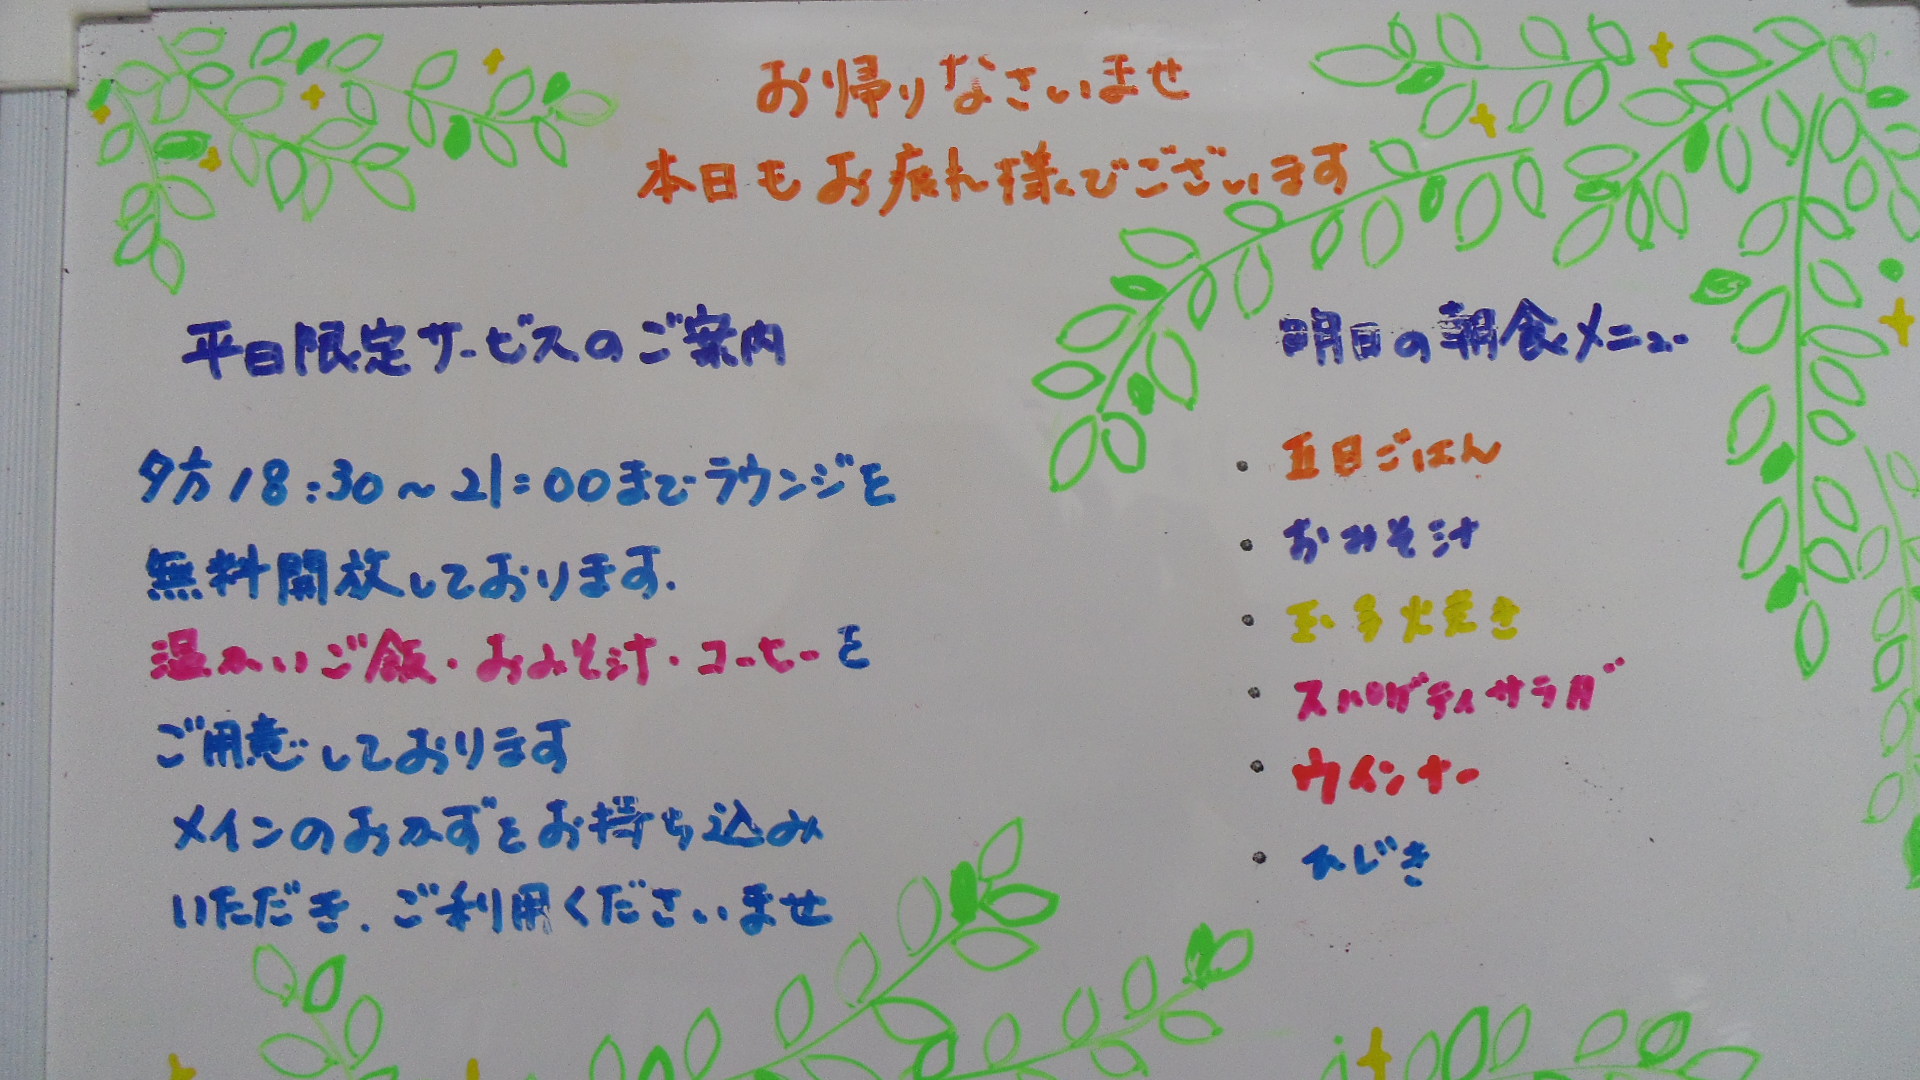 お帰りなさいませ
本日もお疲れ様でございます
平日限定サービスのご案内
夕方18:30～21:00までラウンジを
無料開放しております.
温かいご飯・おみそ汁・コーヒーを
ご用意しております
メインのおかずをお持ち込み
いただき、ご利用くださいませ
明日の朝食メニュー
・五目ごはん
・おみそ汁
・玉子焼き
・スパゲティサラダ
・ウインナー
・ひじき